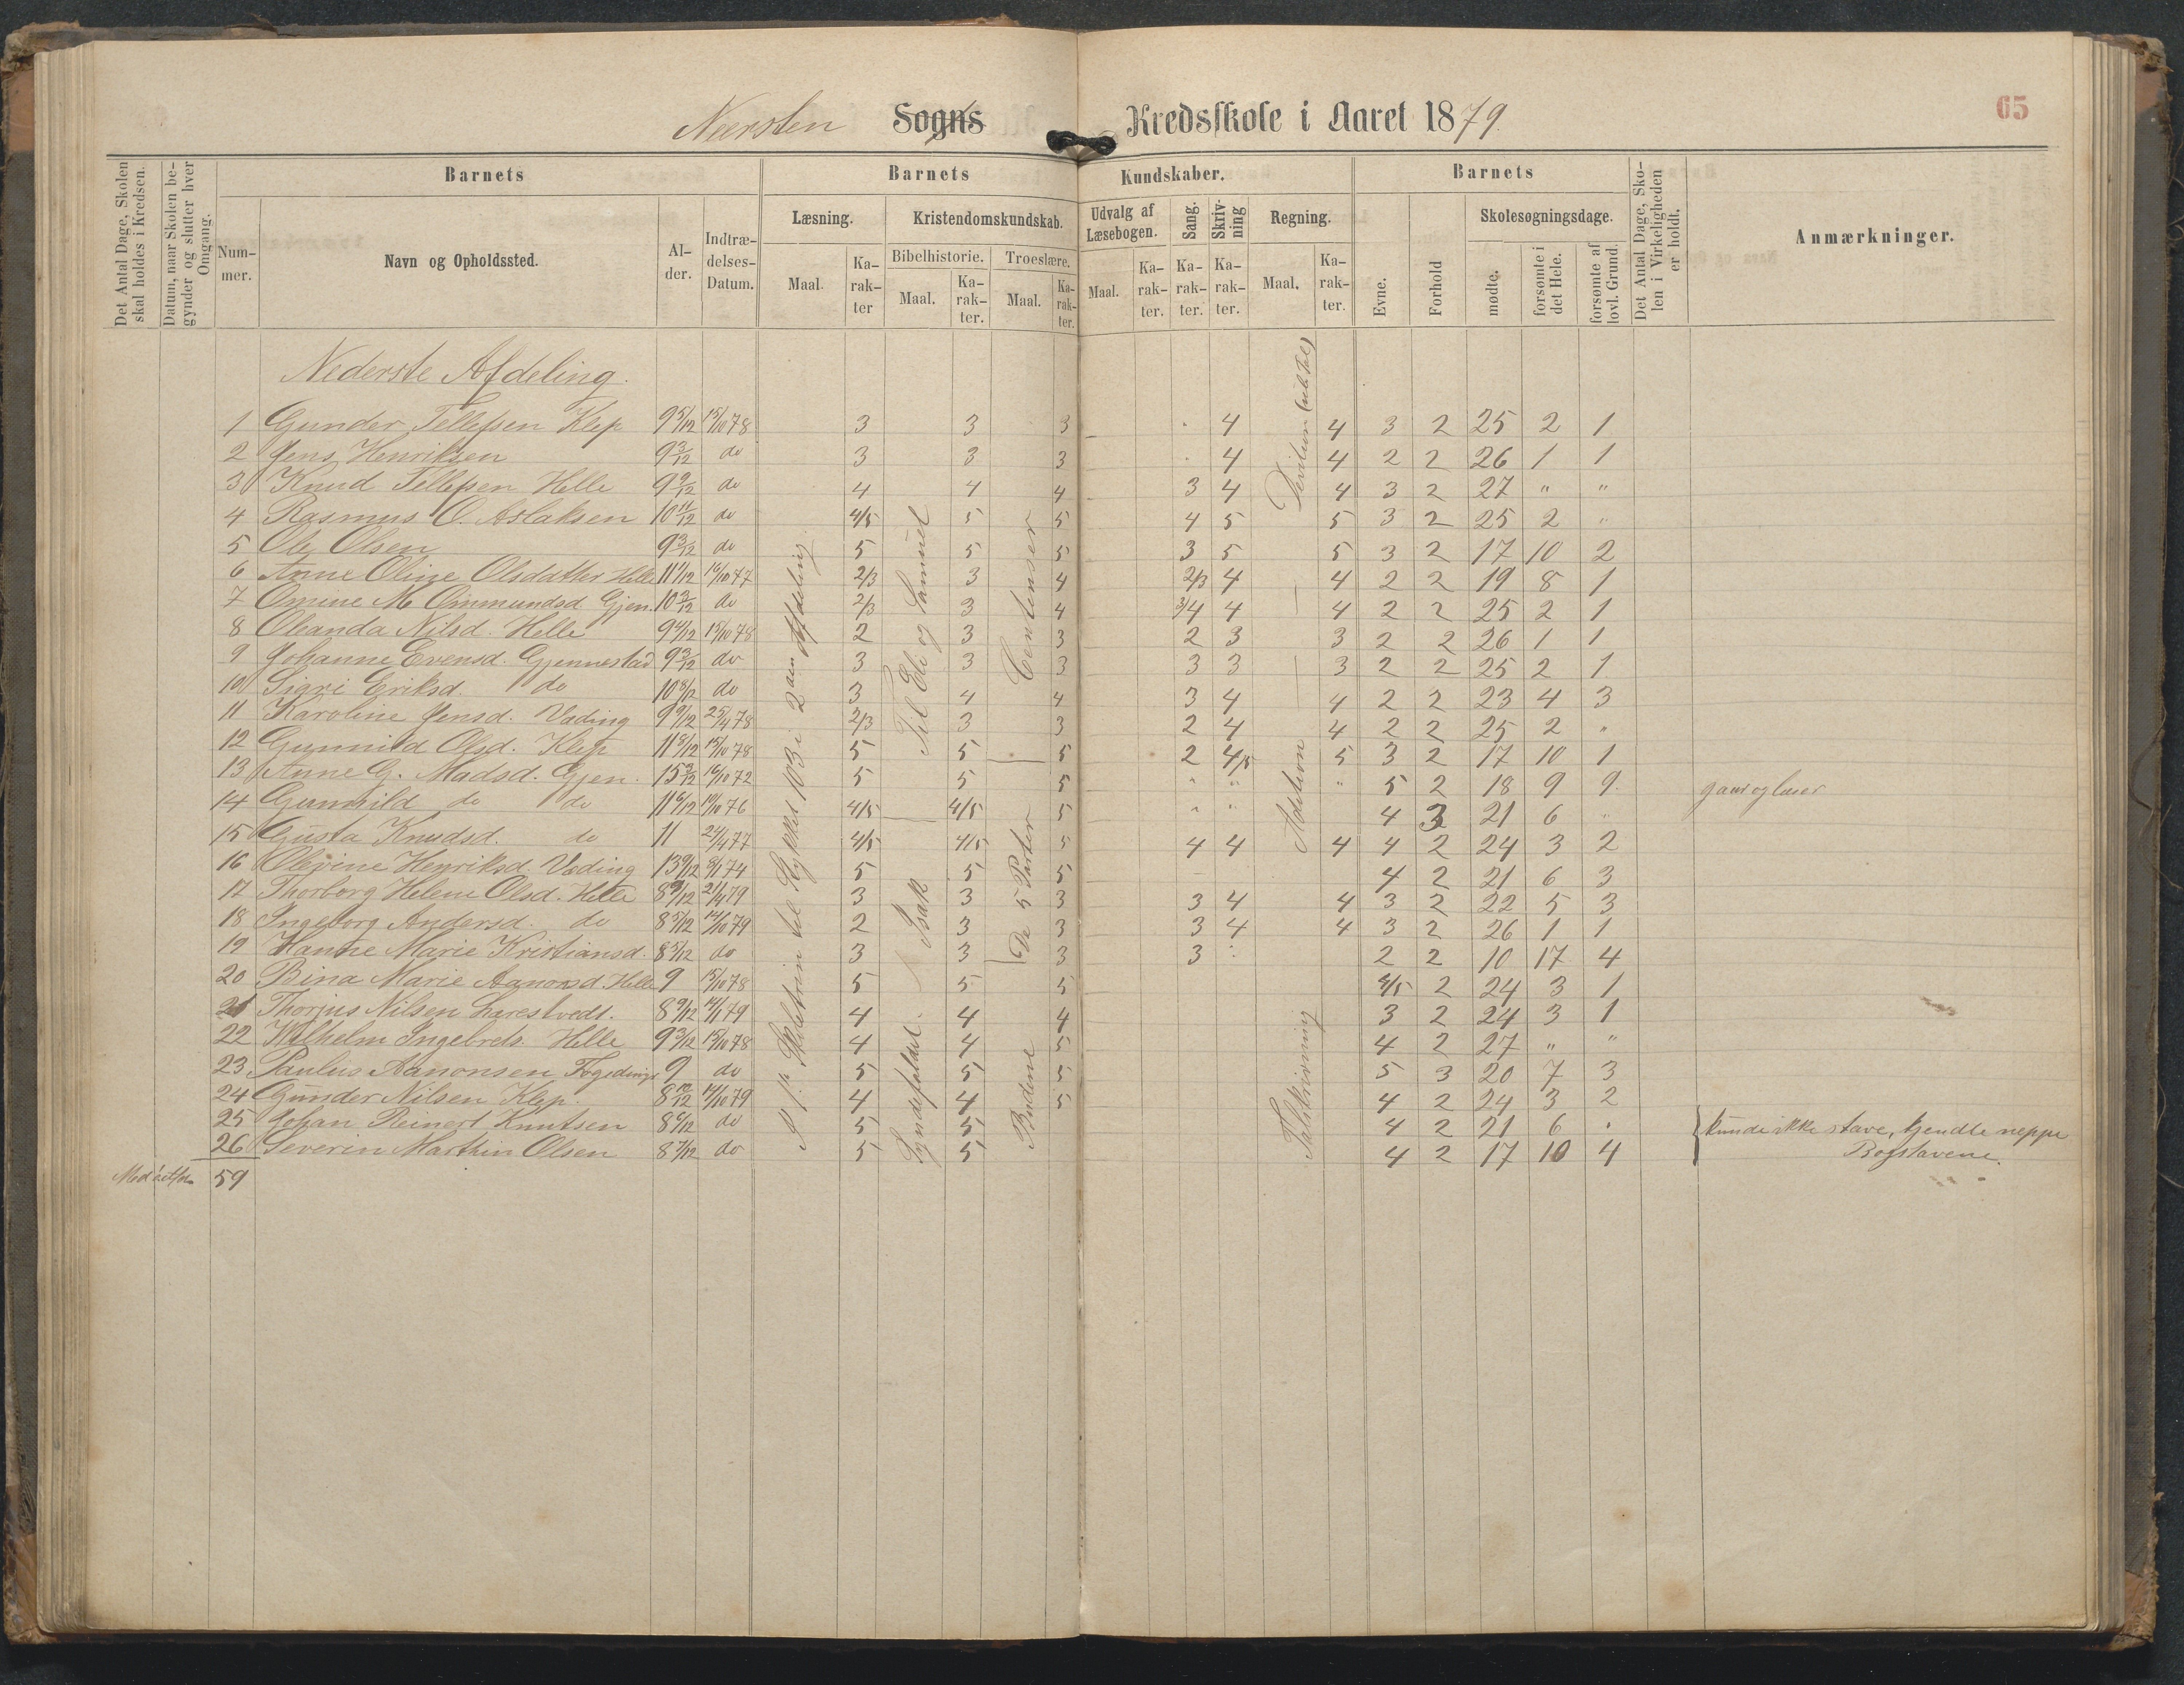 Nærsten Sogns Kredsskole i Aaret 1879.
65
Det Antal Dage, Skolen skal holdes i Kredsen.
Datum, naar Skolen begynder og slutter hver Omgang.
Barnets
Barnets
Kundskaber.
Barnets
Det Antal Dage, Skolen i Virkeligheden er holdt.
Anmærkninger.
Nummer.
Navn og Opholdssted.
Alder.
Indtrædelses-Datum.
Læsning.
Kristendomskundskab.
Udvalg af Læsebogen.
Sang.
Skrivning
Regning.
Evne.
Forhold
Skolesøgningsdage.
Maal.
Karakter
Bibelhistorie.
Troeslære.
Maal.
Karakter.
Maal.
Karakter.
Maal.
Karakter.
Karakter.
Karakter.
Maal.
Karakter.
mødte.
forsømte i det Hele.
forsømte af lovl. Grund.
Nederste Afdeling.
1 Gunder Tellefsen Klep 9 5/12 15/10 78 3 3 3 4 4 3 2 25 2 1
2 Jens Henriksen 9 3/12 do 3 3 3 4 4 2 2 26 1 1
3 Knud Tellefsen Helle 9 9/12 do 4 4 4 3 4 4 3 2 27 " "
4 Rasmus O. Aslaksen 10 11/12 do 4/5 5 5 4 5 5 3 2 25 2 "
5 Ole Olsen 9 3/12 do 5 5 5 3 5 5 3 2 17 10 2
6 Anne Oline Olsdatter Helle 11 1/12 16/10 77 2/3 3 4 2/3 4 4 2 2 19 8 1
7 Omine M. Ommundsd Gjen. 10 3/12 do 2/3 3 4 3/4 4 4 2 2 25 2 1
8 Oleanda Nilsd. Helle 9 4/12 15/10 78 2 3 3 2 3 3 2 2 26 1 1
9 Johanne Evensd. Gjennestad 9 3/12 do 3 3 3 3 3 3 2 2 25 2 1
10 Sigri Eriksd. do 10 8/12 do 3 4 4 3 4 4 2 2 23 4 3
11 Karoline Jensd. Vading 9 9/12 25/4 78 2/3 3 3 2 4 4 2 2 25 2 "
12 Gunnild Olsd. Klep 11 8/12 15/10 78 5 5 5 2 4/5 5 3 2 17 10 1
13 Anne G. Madsd. Gjen. 15 3/12 16/10 72 5 5 5 " " " 5 2 18 9 9.
14 Gunhild do do 11 6/12 19/10 76 4/5 4/5 5 " " 4 3 21 6 "
15 Gusta Knudsd. do 11 24/4 77 4/5 4/5 5 4 4 4 4 2 24 3 2
16 Olevine Henriksd Vading 13 9/12 8/1 74 5 5 5 4 2 21 6 3
17 Thorborg Helene Olsd. Helle 8 9/12 21/4 79 3 3 3 3 4 4 3 2 22 5 3
18 Ingeborg Andersd. do 8 5/12 14/10 79 2 3 3 3 4 4 3 2 26 1 1
19 Hanne Marie Kristiansd. 8 5/12 do 3 3 3 3 2 2 10 17 4
20 Bina Marie Aanonsd. Helle 9 15/10 78 5 5 5 4/5 2 24 3 1
21 Thorjus Nilsen Larestvedt. 8 9/12 14/1 79 4 4 4 3 2 24 3 1
22 Wilhelm Ingebrets. Helle 9 3/12 15/10 78 4 4 5 4 2 27 " "
23 Paulus Aanonsen 9 do 5 5 5 5 3 20 7 3
24 Gunder Nilsen Klep. 8 10/12 14/10 79 4 4 5 4 2 24 3 2
25 Johan Reinert Knutsen 8 6/12 do 5 5 4 2 21 6 "
26 Severin Marthin Olsen 8 7/12 do 5 5 4 2 17 10 4
59
Stykket 103 i 2den Afdeling
Til Eli og Samuel
Isak
Syndefaldet.
De 5 Parter
Budene
Addition
Talskrivning
kunde ikke stave, kjendte neppe
Bogstavene.